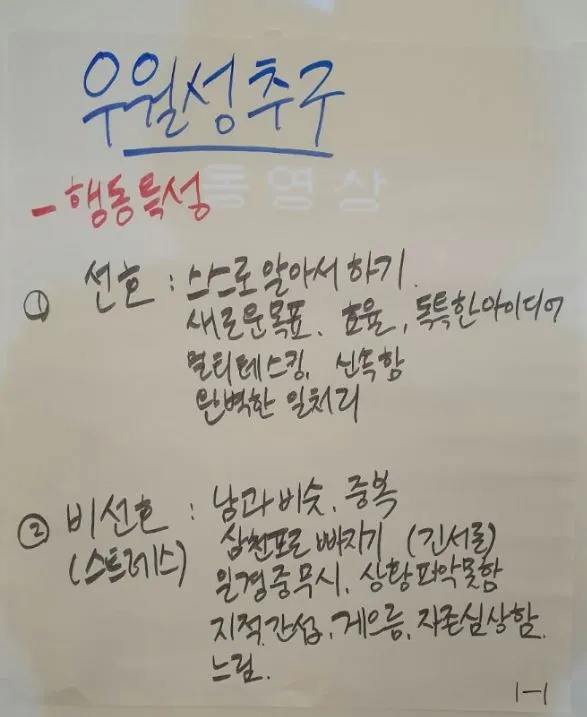 우월성추구
동영상
- 행동특성
① 선호 : 스스로 알아서 하기.
새로운목표. 효율, 독특한아이디어
멀티테스킹, 신속함
완벽한 일처리
② 비선호 : 남과 비슷, 중복
(스트레스) 삼천포로 빠지기 (긴서론)
일경중무시, 상황파악못함
지적,간섭, 게으름, 자존심상함.
느림.
1-1